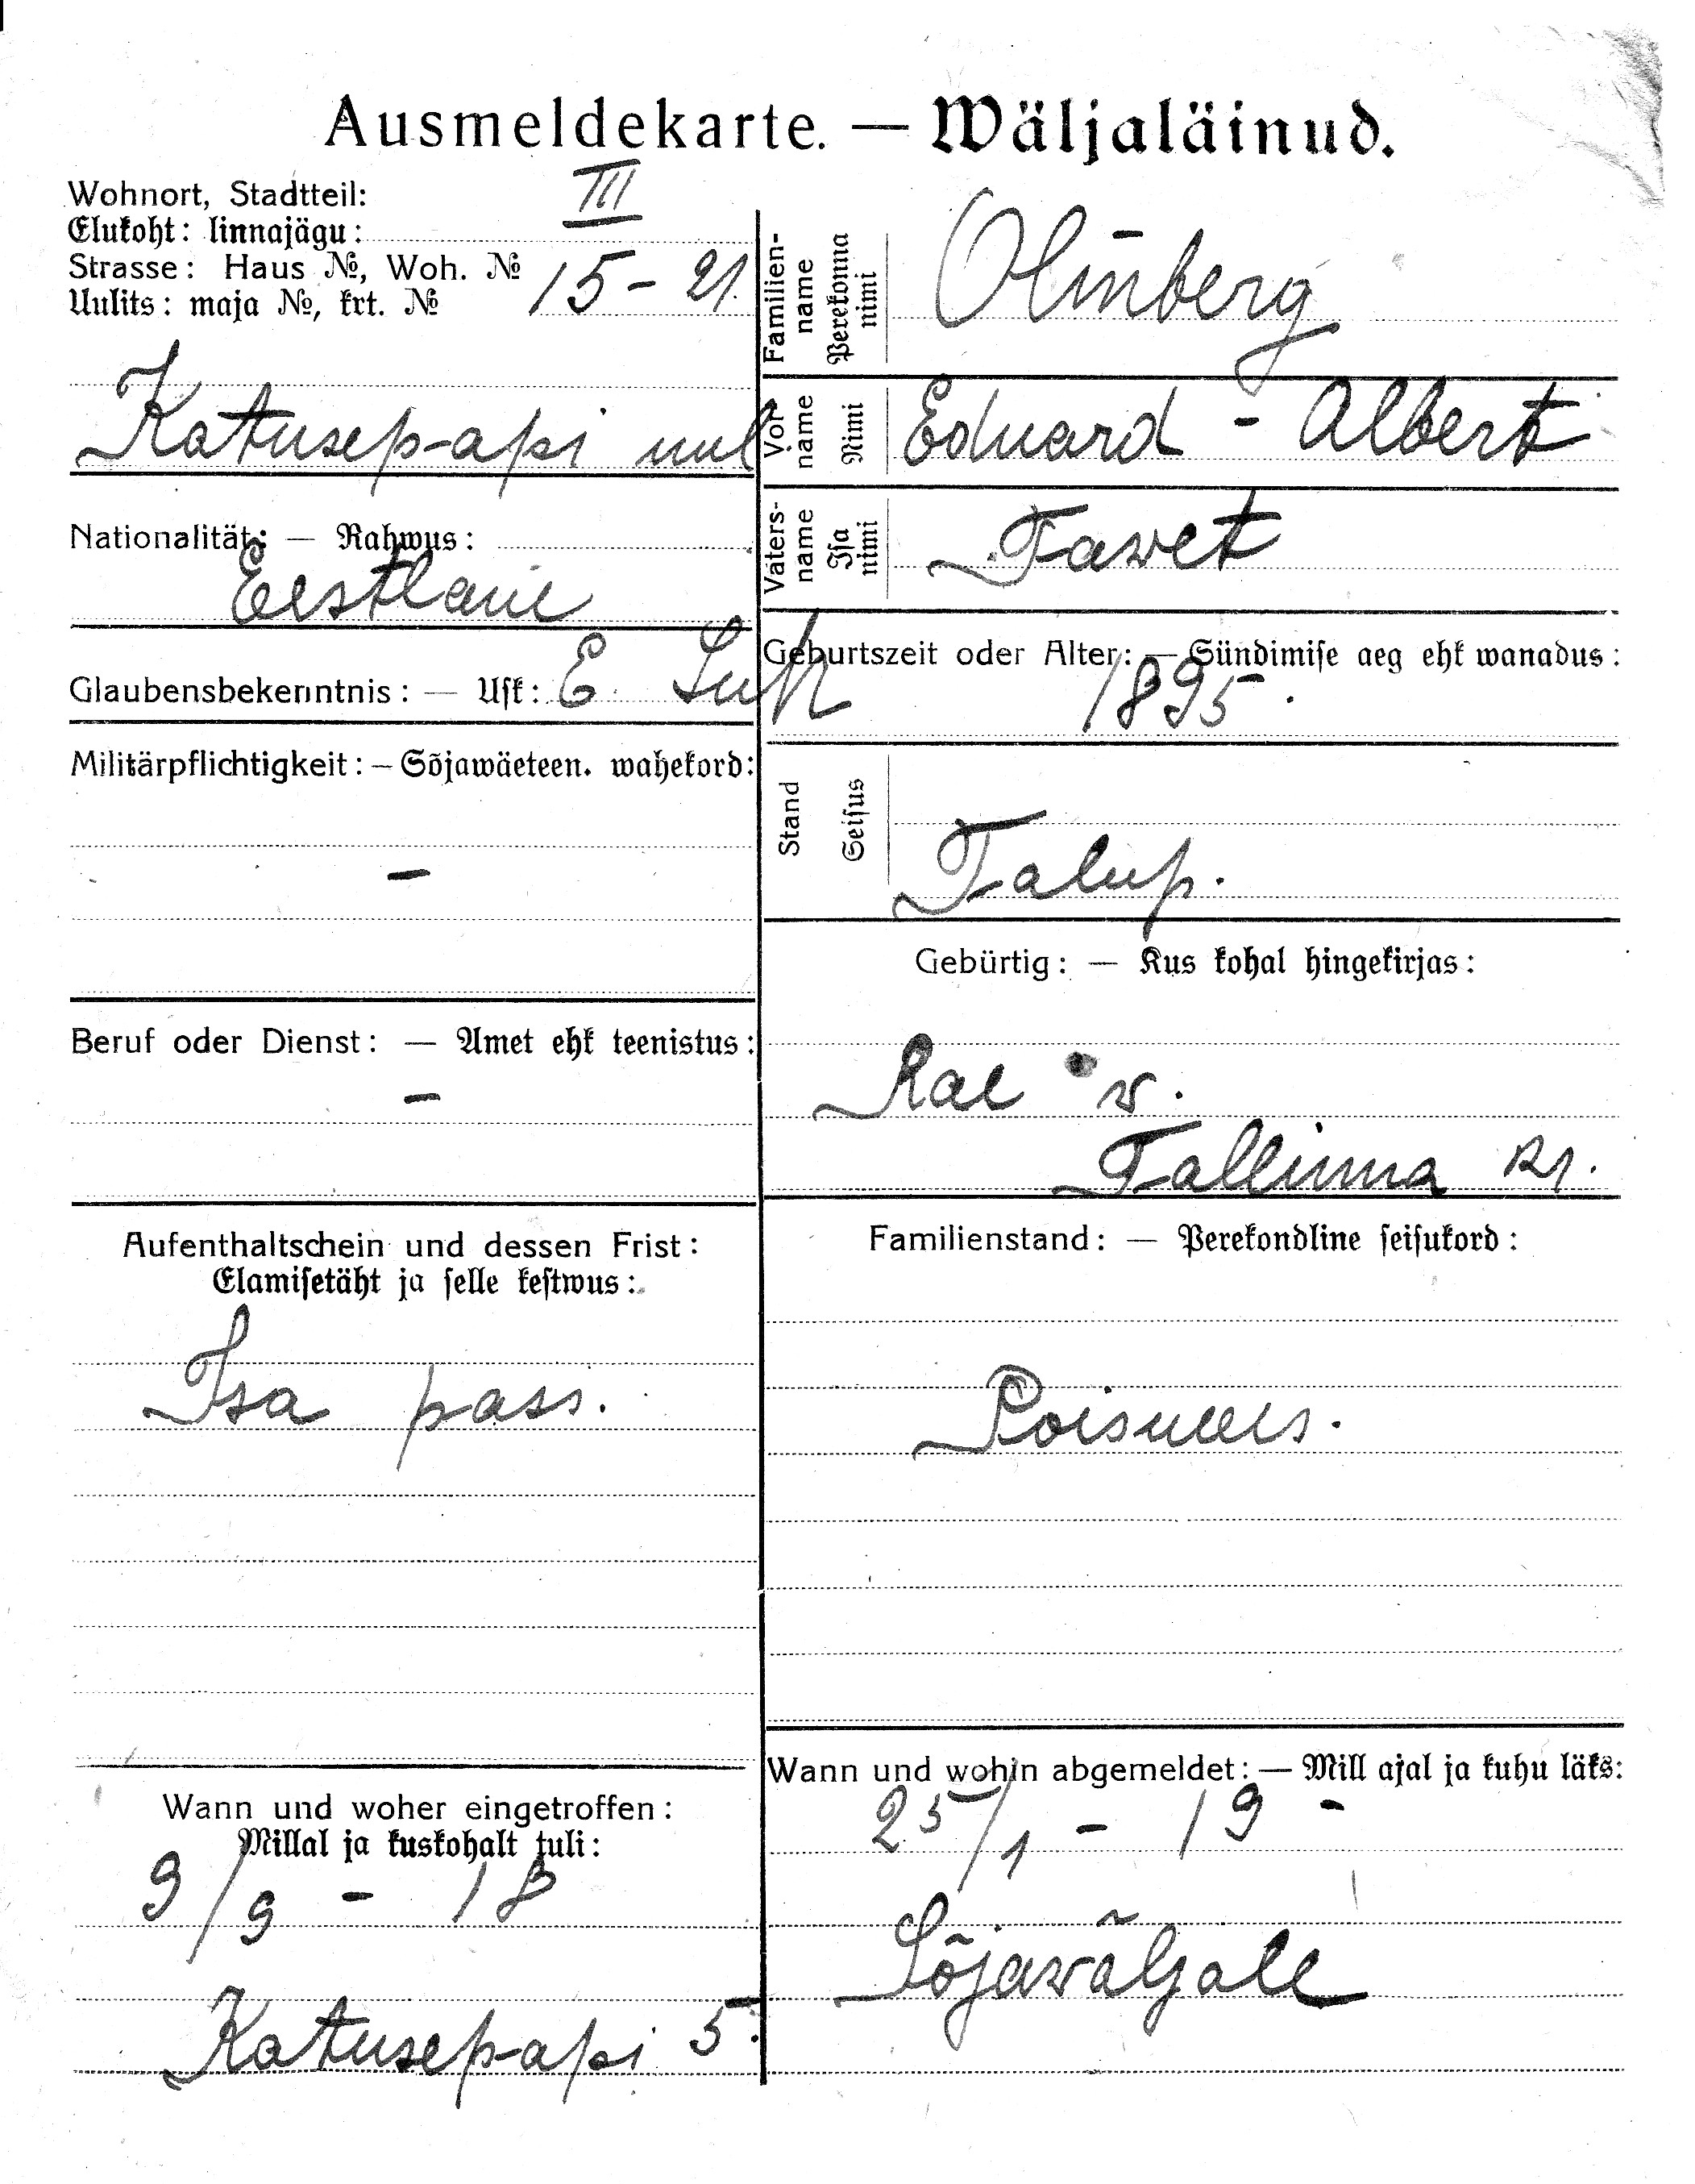 Ausmeldekarte. — Wäljaläinud.
Wohnort, Stadtteil:
Elukoht: linnajägu: III
Strasse: Haus №, Woh. №
Uulits: maja №, krt. № 15 - 21.
Katusepapi uul
Nationalität: — Rahwus:
Eestlane
Glaubensbekenntnis: — Usk: E. Luth
Militärpflichtigkeit: — Sõjawäeteen. wahekord:
–
Beruf oder Dienst: — Amet ehk teenistus:
–
Aufenthaltschein und dessen Frist:
Elamisetäht ja selle kestwus:
Isa pass.
Wann und woher eingetroffen:
Millal ja kuskohalt tuli:
9/9 - 18
Katusepapi 5.
Familien-
name
Perekonna
nimi
Olmberg
Vor-
name
Nimi
Eduard - Albert
Vaters-
name
Isa
nimi
Tawet
Geburtszeit oder Alter: — Sündimise aeg ehk wanadus:
1895.
Stand
Seisus
Talup.
Gebürtig: — Kus kohal hingekirjas:
Rae w.
Tallinna kr.
Familienstand: — Perekondline seisukord:
Poismees.
Wann und wohin abgemeldet: — Mill ajal ja kuhu läks:
25/1 - 19 -
Sõjawäljale